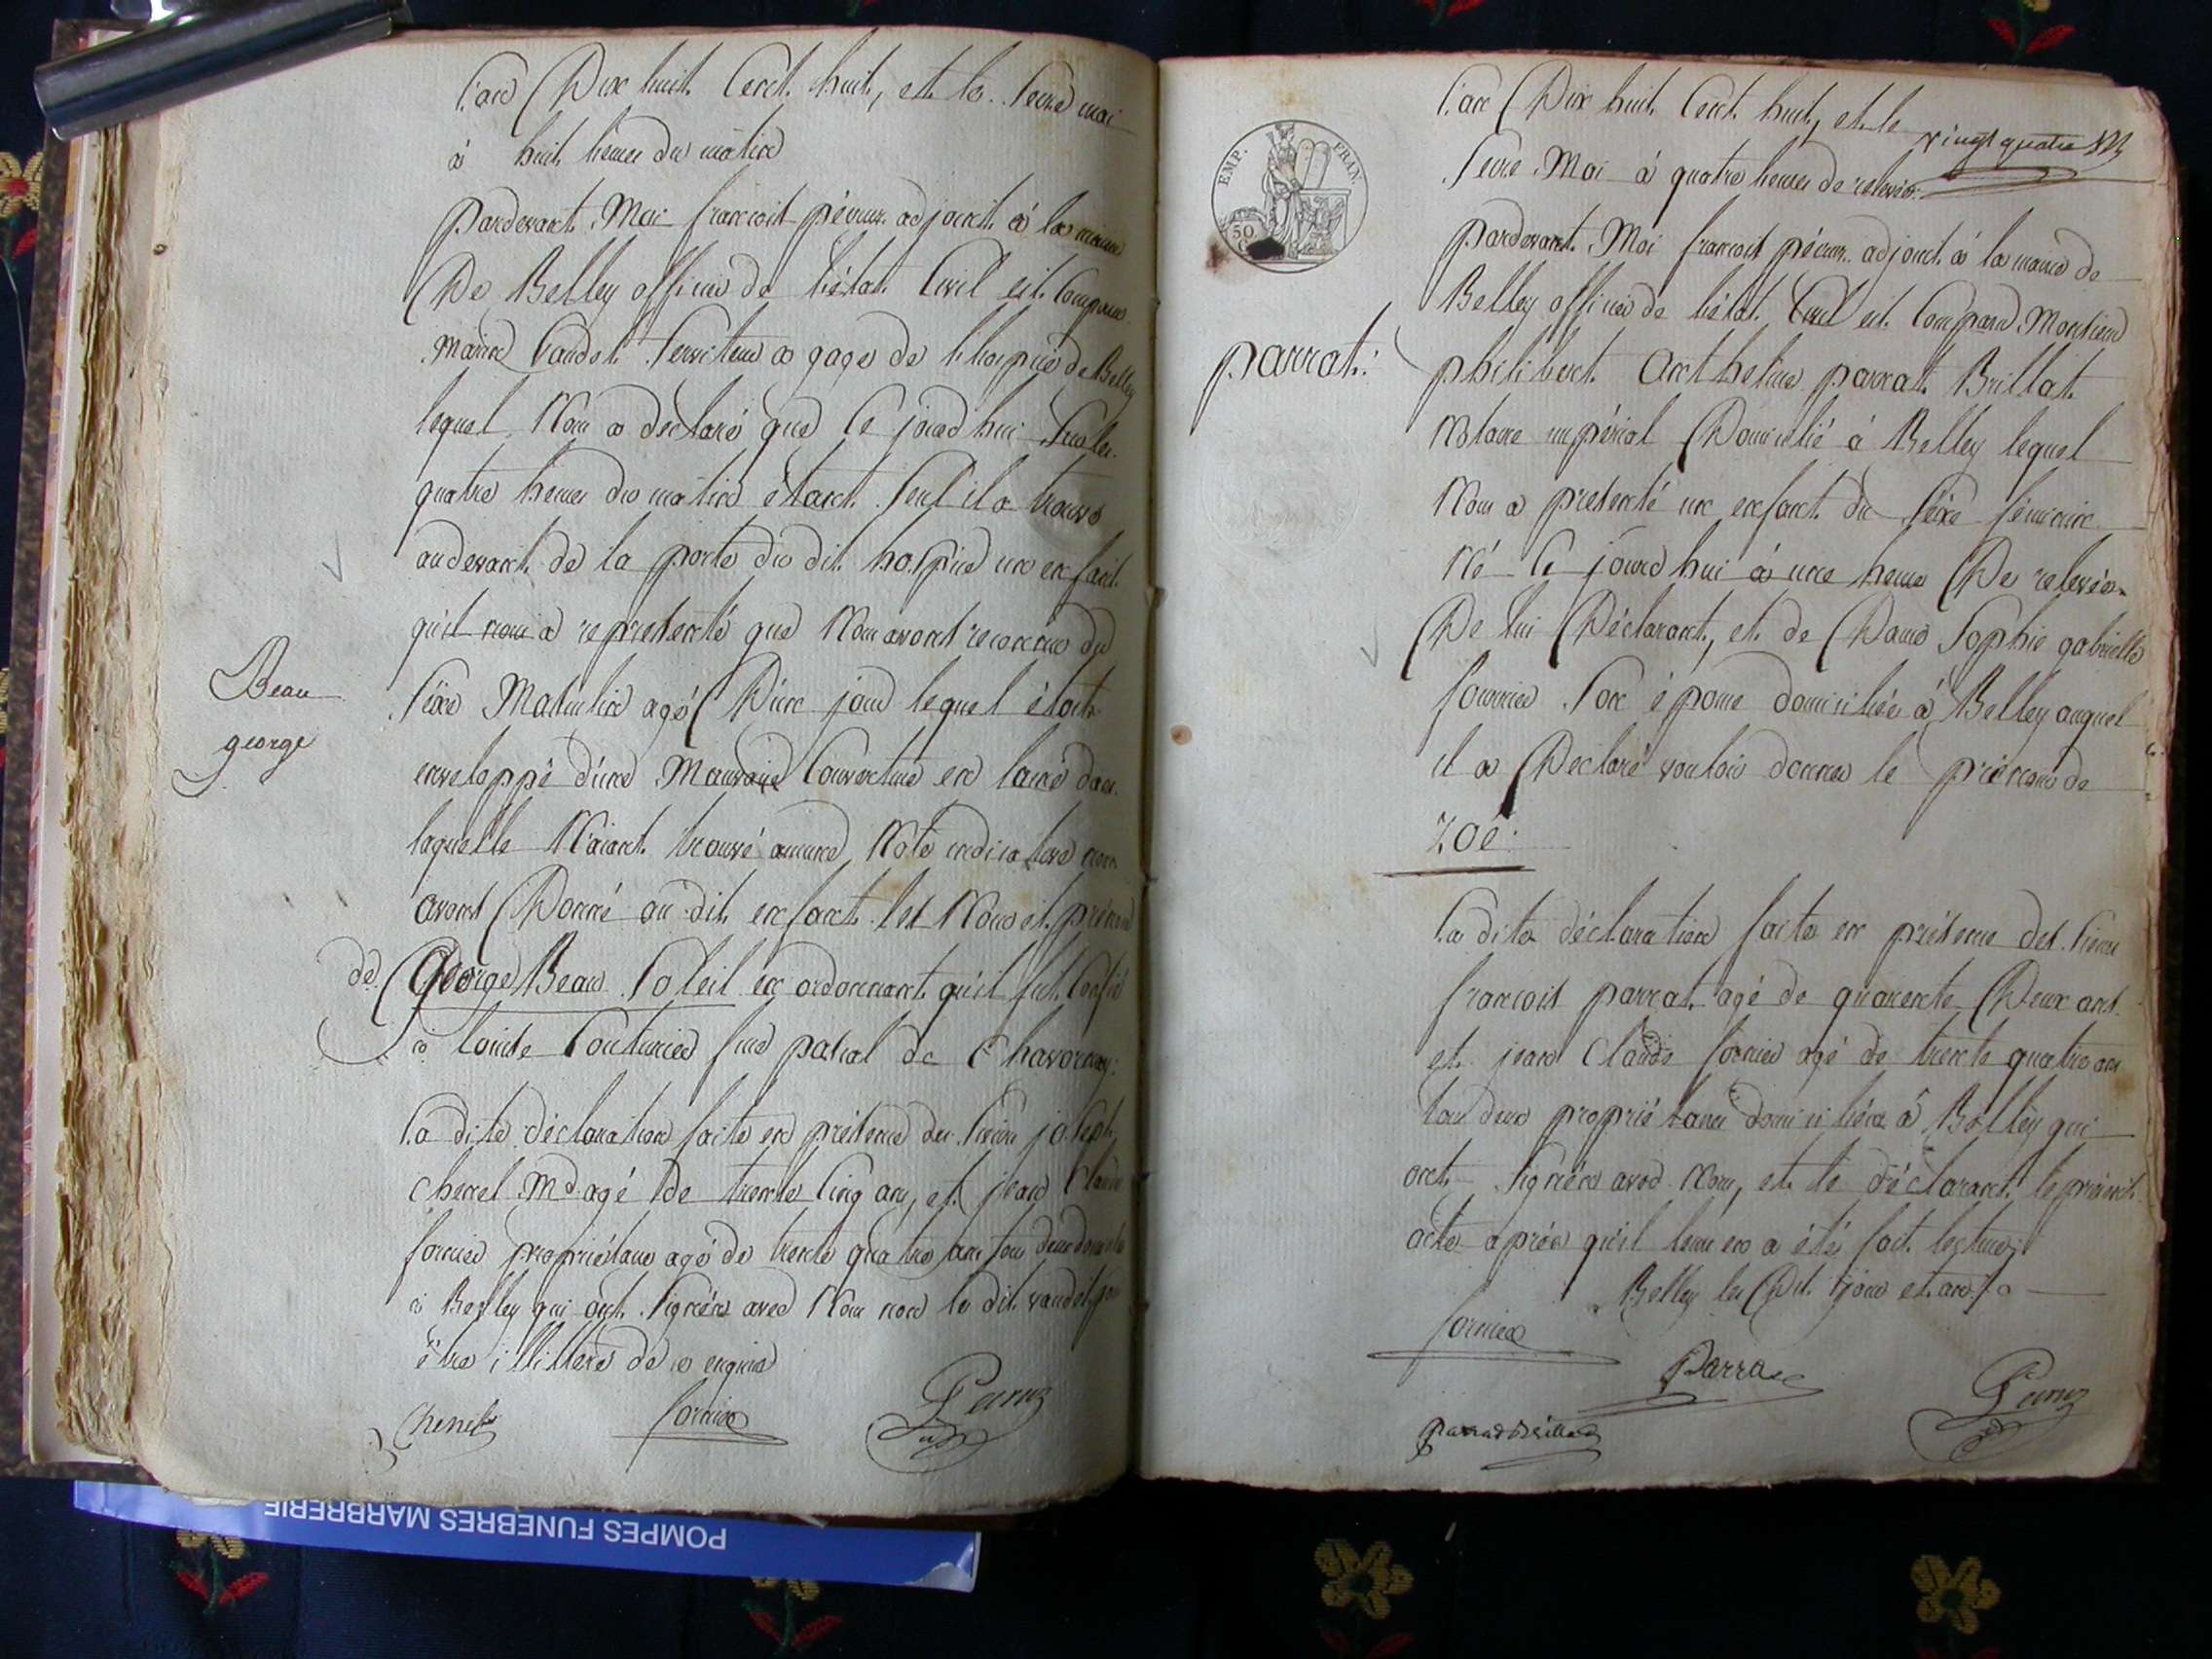 L'an Dix huit Cent huit, et le Seize mai
à huit heures du matin
pardevant Moi françois péruz adjoint à la mairie
De Belley officier de l'état Civil est Comparu
Gaudet Serviteur a gage de l'hospice de Belley
lequel Nous a déclaré que Ce jourd'hui Sur les
quatre heures du matin étant Seul il a trouvé
audevant de la porte du dit hospice un enfant
qu'il nous a représenté que Nous avons reconnu du
Séxe Masculin agé D'un jour lequel étoit
Beau
george
enveloppé d'une Mauvaise Couverture en laine dans
laquelle N'aiant trouvé aucune Note indicative nous
avons Donné au dit enfant les Nom et prénom
de George Beau Soleil en ordonnant qu'il fut Confié
à louise Couturier fme patral de Chavornay:
La dite déclaration faite en présence des Sieurs joseph
Chenel Md agé de trente Cinq ans, et jean Claude
fornier propriétaire agé de trente quatre ans tous deux
à Belley qui ont Signés avec Nous non le dit
être illitéré de ce enquis
Chenel
fornier
Péruz
EMP. FRAN.
50
L'an Dix huit Cent huit, et le vingt quatre
Seize Mai à quatre heures de relevée
pardevant Moi françois péruz adjoint à la mairie de
Belley officier de l'état Civil est Comparu Monsieur
parrat:
philibert Anthelme parrat Brillat
Notaire impérial Domicilié à Belley lequel
Nous a présenté un enfant du Séxe féminin
Né Ce jourd'hui à une heure De relevée
De lui Déclarant, et de Dame Sophie gabrielle
fournier Son épouse domiciliée à Belley auquel
il a Déclaré vouloir donner le prénom de
Zoé:
La dite déclaration faite en présence des Sieurs
françois parrat agé de quarente Deux ans
et jean Claude fornier agé de trente quatre ans
tous deux propriétaires domiciliés à Belley qui
ont Signés avec Nous, et le déclarant le présent
acte après qu'il leur en a été fait lecture
Belley les Dit jour et an
fornier
Parrat
Parrat Brillat
Péruz
POMPES FUNEBRES MARBRERIE